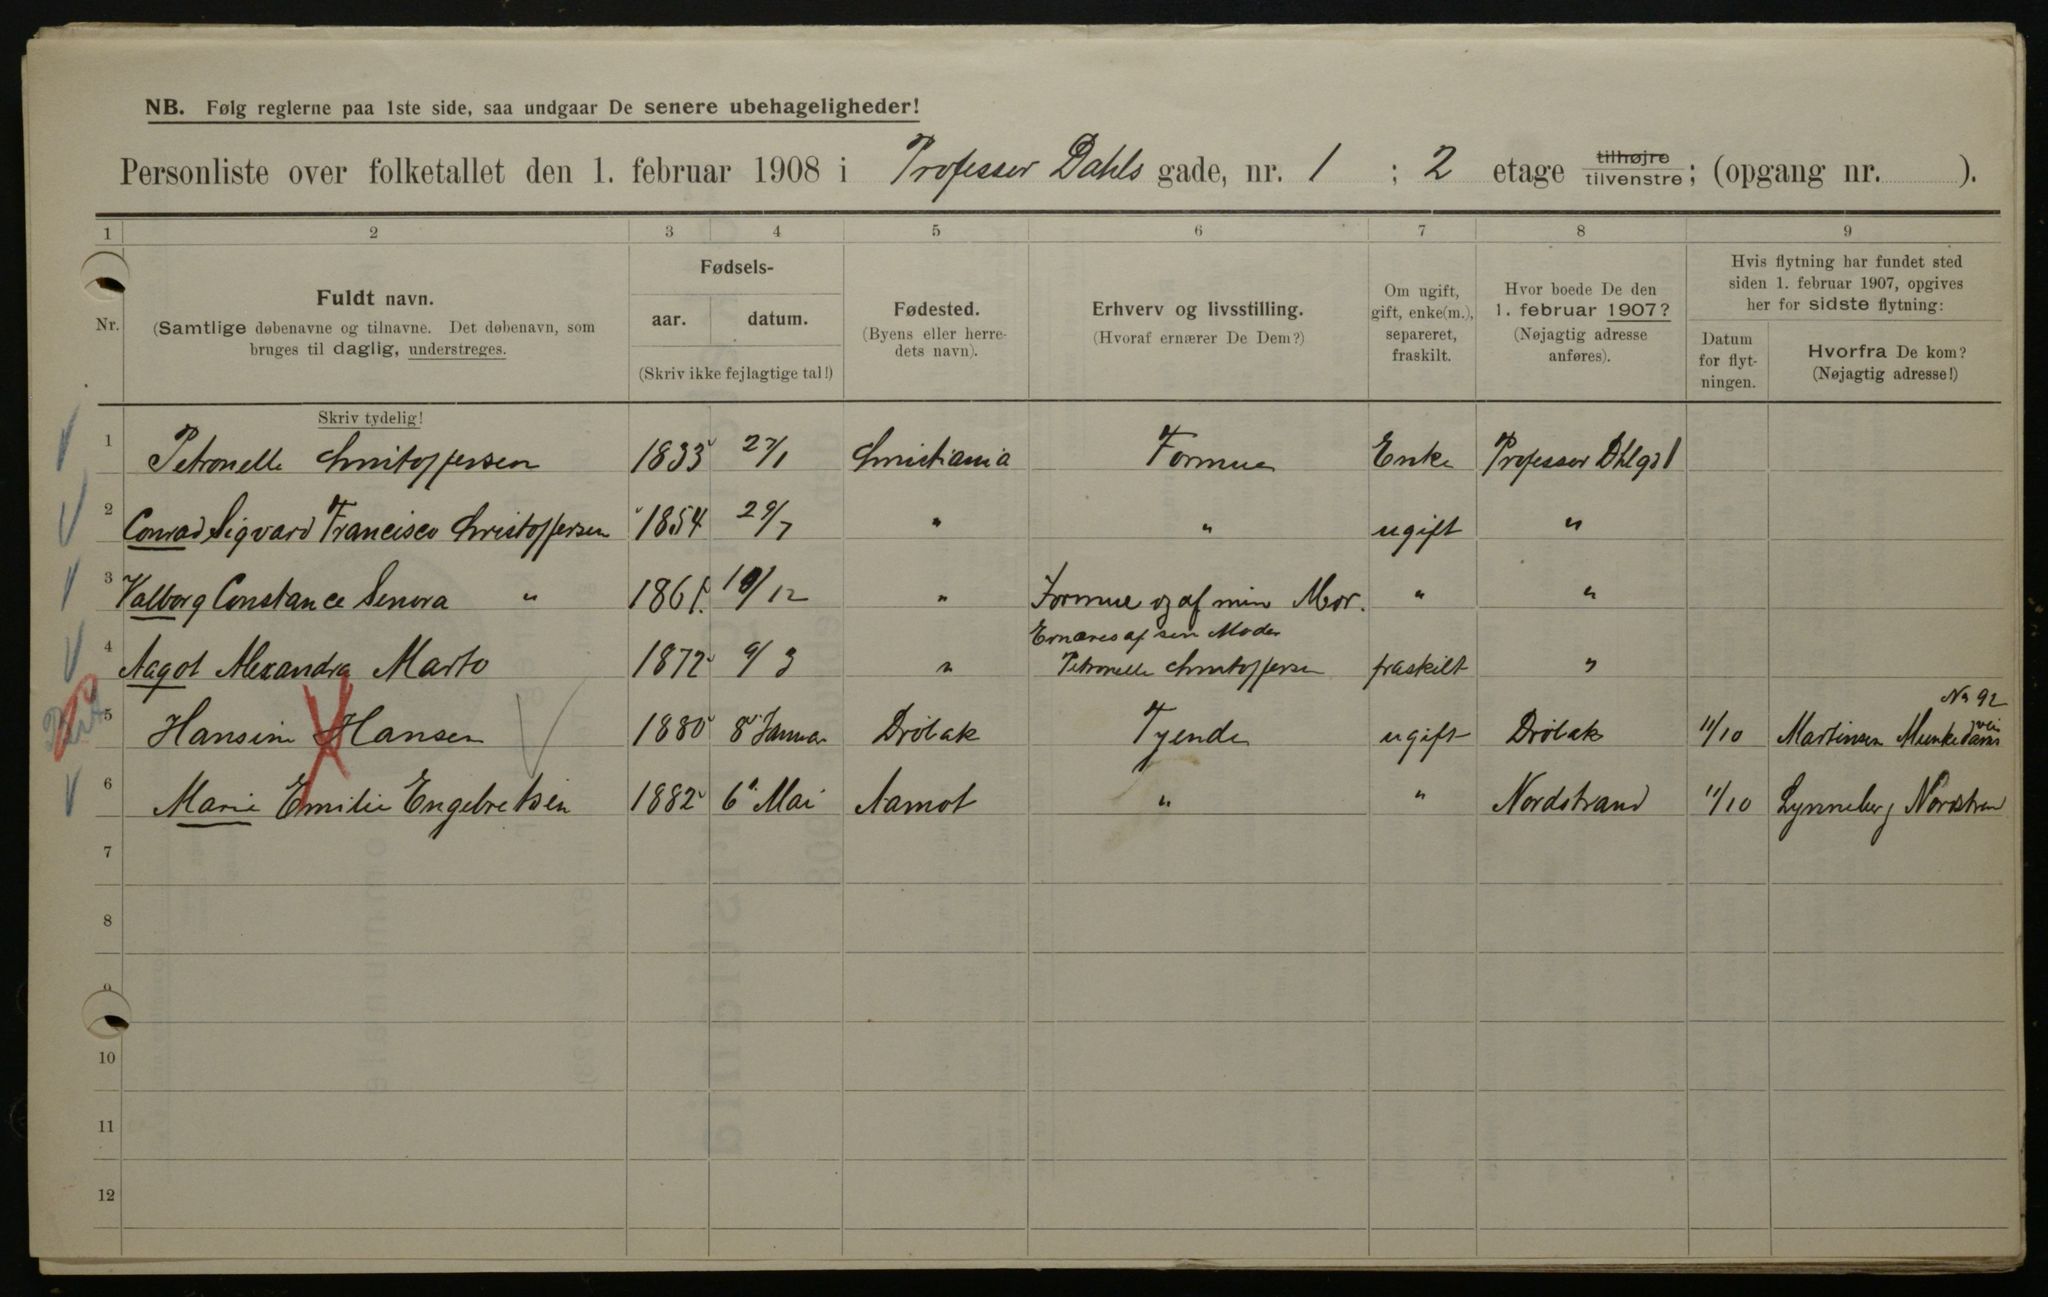 NB. Følg reglerne paa 1ste side, saa undgaar De senere ubehageligheder!
Personliste over folketallet den 1. februar 1908 i Professor Dahls gade, nr. 1 ; 2 etage tilhøjre tilvenstre; (opgang nr. ).
1 2 3 4 5 6 7 8 9
Nr.
Fuldt navn.
(Samtlige døbenavne og tilnavne. Det døbenavn, som
bruges til daglig, understreges.
Skriv tydelig!
Fødsels-
aar. datum.
(Skriv ikke fejlagtige tal!)
Fødested.
(Byens eller herre-
dets navn).
Erhverv og livsstilling.
(Hvoraf ernærer De Dem?)
Om ugift,
gift, enke(m.),
separeret,
fraskilt.
Hvor boede De den
1. februar 1907?
(Nøjagtig adresse
anføres).
Hvis flytning har fundet sted
siden 1. februar 1907, opgives
her for sidste flytning:
Datum
for flyt-
ningen.
Hvorfra De kom?
(Nøjagtig adresse!)
1 Petronelle Christoffersen 1833 27/1 Christiania Formue Enke Professor Dhlgd 1
2 Conrad Sigvard Francisco Christoffersen 1854 29/7 " " ugift "
3 Valborg Constance Senora " 1861. 10/12 " Formue og af min Mor. " "
4 Aagot Alexandra Marto 1872 9/3 " Ernæres af sin Moder
Petronelle Christoffersen fraskilt "
5 Hansine Hansen 1880 8 Januar Dröbak Tjende ugift Dröbak 11/10 Martinsen Munkedams
vei
No 92
6 Marie Emilie Engebretsen 1882 6 Mai Aamot " " Nordstrand 11/10 Lynneberg Nordstran
7
8
9
10
11
12